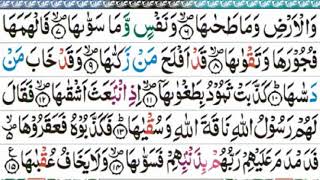 وَالْاَرْضِ وَمَا طَحٰىهَا ۙ۶ وَنَفْسٍ وَّمَا سَوّٰىهَا ۙ۷ فَاَلْهَمَهَا
فُجُوْرَهَا وَتَقْوٰىهَا ۙ۸ قَدْ اَفْلَحَ مَنْ زَكّٰىهَا ۙ۹ وَقَدْ خَابَ مَنْ
دَسّٰىهَا ۱۰ كَذَّبَتْ ثَمُوْدُ بِطَغْوٰىهَاۤ ۙ۱۱ اِذِ انْۢبَعَثَ اَشْقٰىهَا ۙ۱۲ فَقَالَ
لَهُمْ رَسُوْلُ اللّٰهِ نَاقَةَ اللّٰهِ وَسُقْيٰهَا ۱۳ فَكَذَّبُوْهُ فَعَقَرُوْهَا
فَدَمْدَمَ عَلَيْهِمْ رَبُّهُمْ بِذَنْۢبِهِمْ فَسَوّٰىهَا ۙ۱۴ وَلَا يَخَافُ عُقْبٰهَا ۱۵